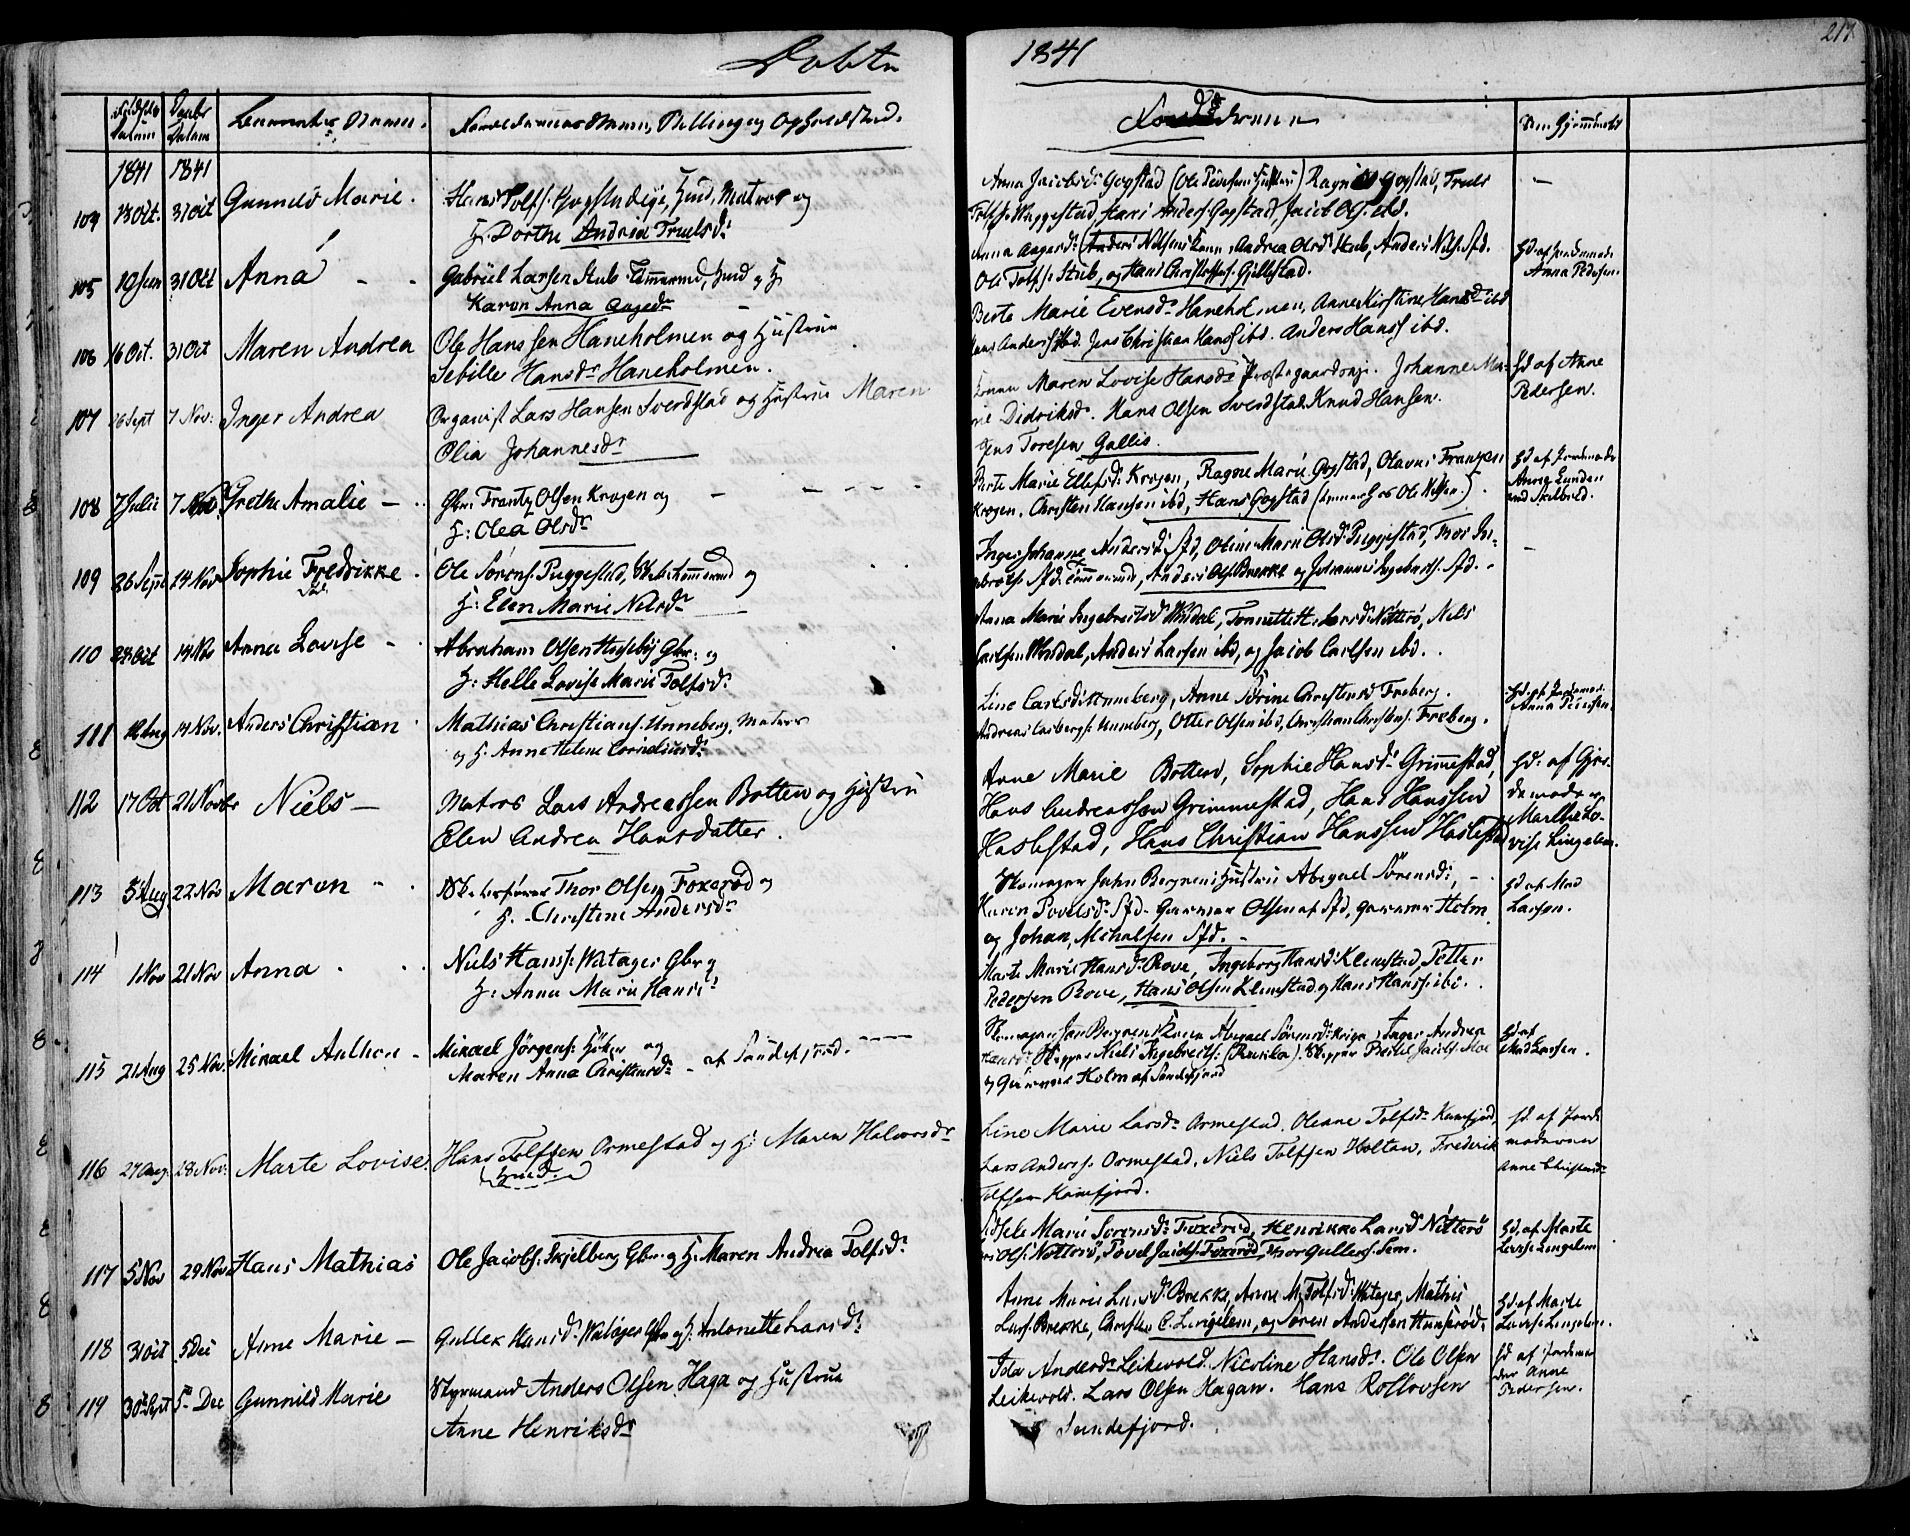 Døbte
1841
217
Fødsels Datum
Daabs Datum
Barnets Navn.
Forældrenes Navn, Stilling og Opholdsted.
Fadderne
Om Hjemmedøbt
1841 1841
104 13 Oct. 31 Oct Gunnild Marie.
Hans Tolfs: Gogstadeie, Huus, Matros og
H: Dorthe Andrea Truelsd:
Anna Jacobsd: Gogstad (Ole Pedersens Hustru) Ragn Gogstad, Truls
Tolfs: Puggestad, Hans Anders: Gogstad, Jacob Ols: ibd.
105 19 Juni 31 Oct Anna
Gabriel Larsen Stub Tømmermd, Huus og H:
Karen Anna Aagesd:
Anna Aagesd: (Anders Nilsens Kone, Andrea Olsd: Stub, Anders Nils: Sfd.
Ole Tolfs: Stub, og Hans Christoffers: Gjellestad.
Hd af Jordmoder
Anna Pedersen.
106 16 Oct. 31 Oct Maren Andrea
Ole Hanssen Haneholmen og Hustrue
Sebille Hansdr Haneholmen.
Berte Marie Evensdr Haneholmen, Anne Kirstine Hansdr ibd
Hans Anders ibd. Jens Christian Hans ibd. Anders Hans ibd.
107 26 Sept 7 Nov: Inger Andrea
Organist Lars Hansen Sverdstad og Hustrue Maren
Olia Johannesdr
Konen Maren Lovise Hansdr Præstegaardseje. Johanne Ma-
rie Didriksd. Hans Olsen Sverdstad. Knud Hansen.
Jens Toresen Gallis.
Hd af Anne
Pedersen.
108 7 Julii 7 Nov. Grethe Amalie
Gbr: Frantz Olsen Krogen og
H: Olea Olsdr
Berte Marie Ellefsd: Krogen, Ragne Marie Gogstad, Olavus Frantzen
Krogen, Christen Hansen ibd, Hans Gogstad
Hd af Jordmoder
Anne Lunden
ved Skelbred.
109 26 Sept 14 Nov Sophie Fredrikke
Ole Sørens: Puggestad, Tømmermd og
H: Elen Marie Nilsdr
Inger Johanne Andersd: Sfd, Oline Marie Olsd: Puggestad, Thor In-
gebrets: Sfd: Tømmermd, Anders Ols: Brekke og Johannes Ingebrets: Sfd.
110 28 Oct 14 Nov Anne Lovise
Abraham Olsen Huseby Gbr: og
H: Helle Lovise Marie Tolfsd:
Anna Marie Ingebretsd: Windal, Tonnette H. Larsd: Nötterö, Nils
Carlsen Windal, Anders Larsen ibd, og Jacob Carlsen ibd.
111 12 Aug 14 Nov. Anders Christian
Mathias Christians: Unneberg, Matros
og H: Anne Helene Corneliusd:
Line Carlsd: Unneberg, Anne Torine Christensd: Freberg.
Andreas Carlsberg: Unneberg, Otter Olsen ibd, Christian Christens: Freberg.
Hd. af Jordmod:
Anna Pedersen.
112 17 Oct 21 Novbr Niels
Matros Lars Andreassen Botten og Hustru
Elen Andrea Hansdatter.
Anne Marie Botten, Sophie Hansdr Grimmestad,
Hans Andreassen Grimmestad, Hans Hanssen
Haslestad, Hans Christian Hanssen Haslestad
Hd. af Gjor-
demoder
Marthe Lo-
vise Lingelem.
113 5 Aug 22 Nov Maren
Skibsfører Thor Olsen Foxerød og
H. Christine Andersdr
Skomager Jahn Bergrens Hustru Abigael Sörensd:,
Karen Povelsd: Sfd. Garver Olsen af Sfd, Garver Holm
og Johan Michalsen Sfd.
Hd af Mad
Larsen.
114 1 Nov 21 Nov Anna
Niels Hans: Watager Gbr og
H: Anne Marie Hansd:
Marte Marie Hansd: Rove, Ingeborg Hansd: Klemstad, Petter
Pedersen Rove, Hans Olsen Klemstad og Hans Hans: ibd.
115 21 Aug 25 Nov: Mikael Anthon
Mikael Jörgens: Höker og
Maren Anna Christensd: - af Sandefjord.
Skomager Jan Bergrens Kone Abigael Sörensd: Inger Andrea
Hansd: Skipper Niels Ingebrets: Skipper Bertel Jacobs: Moe
og Garver Holm af Sandefjord
Hd af
Mad Larsen.
116 27 Aug. 28 Nov: Marte Lovise.
Hans Tolfsen Ormestad og H: Maren Halvorsdr
(Huusd.)
Line Marie Larsdr Ormestad. Oleane Tolfsdr Kamfjord,
Lars Anders: Ormestad. Niels Tolfsen Holtan, Frederik
Tolfsen Kamfjord.
Hd. af Jorde
moderen
Anne Christensdr
117 5 Nov 29 Nov Hans Mathias
Ole Jacobs: Skjelberg Gbr: og H: Maren Andrea Tolfsd:
Sidsele Marie Sorensd: Foxerød, Henrikke Larsd: Nötterö
Ols: Nötterö, Povel Jacobs: Foxerød, Thor Gullers: Sem.
Hd. af Marte
Lovise Lingelem
118 31 Oct 5 Dec Anne Marie
Gullek Hansd: Watager Gbr og H: Antonette Larsd:
Anne Marie Larsd: Brekke, Anne M. Tolfsd: Watager, Mathis
Lars: Brekke, Christen C. Lingelem, og Søren Andersen Hunsrød.
Hd. af Marte
Lovise Lingelem.
119 30 Sept 5 Dec Gunnild Marie
Styrmand Anders Olsen Haga og Hustrue
Anne Henriksdr
Ida Andersdr Leikevold. Nicoline Hansdr. Ole Olsen
Leikevold. Lars Olsen Hagan. Hans Rollovsen
Sandefjord.
Hd af Jordmo
der Anne
Pedersen.